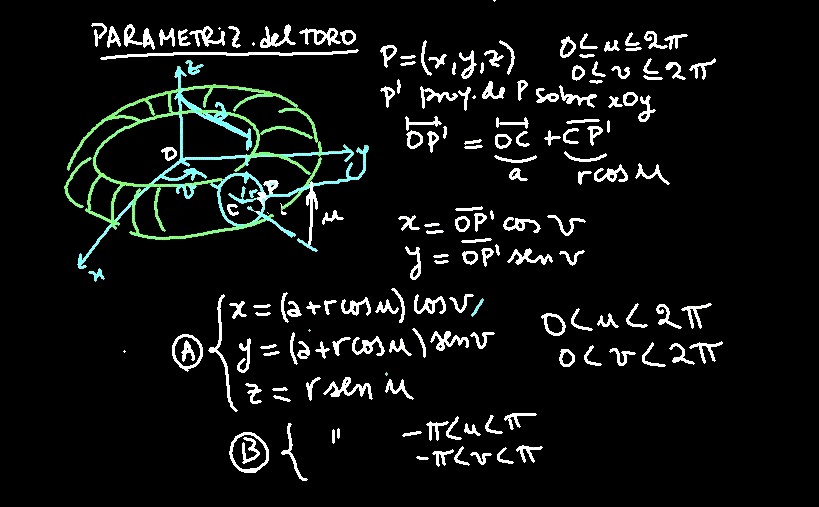 PARAMETRIZ. del TORO
P=(x,y,z) 0≤u≤2π
0≤v≤2π
P' proy. de P sobre xOy
OP' = OC + CP'
a rcosu
x = OP' cos v
y = OP' sen v
z
a
O
y
v
r
P
C
u
x
A { x = (a+rcosu) cosv,
y = (a+rcosu) senv
z = r sen u
0<u<2π
0<v<2π
B { " -π<u<π
-π<v<π